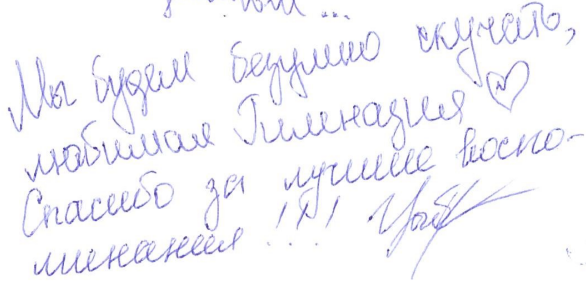 Мы будем безумно скучать,
любимая Гимназия ♡
Спасибо за лучшие воспо-
минания !!!